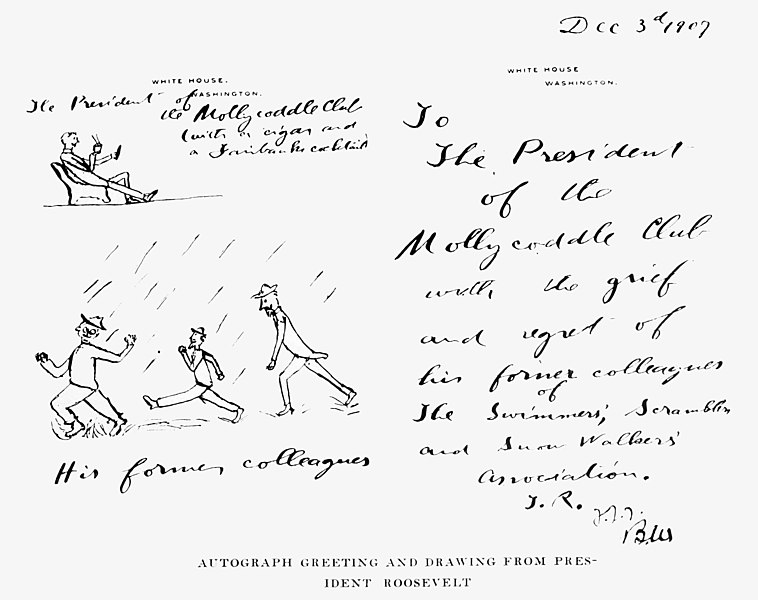 WHITE HOUSE.
WASHINGTON.
The President of
the Mollycoddle Club
(with a cigar and
a Fairbanks cocktail)
His former colleagues
Dec 3d 1907
WHITE HOUSE
WASHINGTON.
To
The President
of the
Mollycoddle Club
with the grief
and regret of
his former colleagues
of
The Swimmers', Scramblers
and Snow Walkers'
Association.
T. R.
AUTOGRAPH GREETING AND DRAWING FROM PRES-
IDENT ROOSEVELT